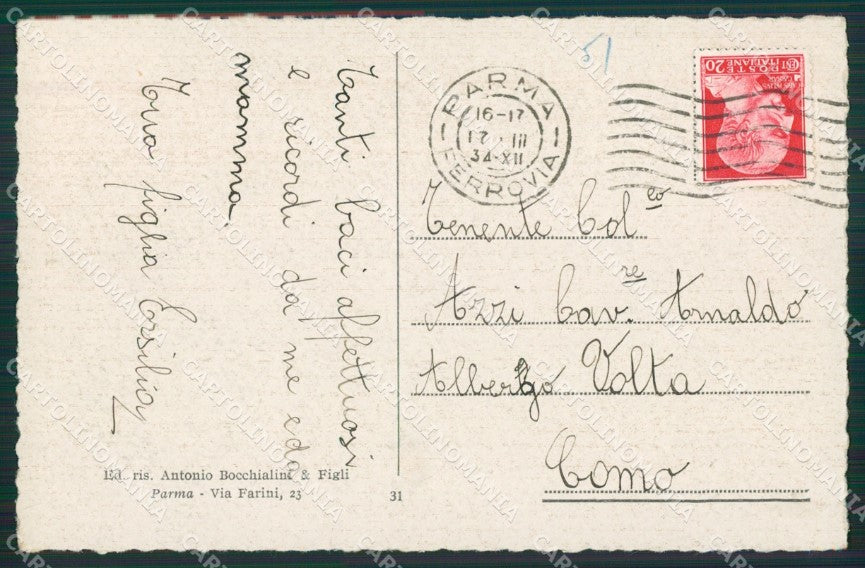 Tanti baci affettuosi
e ricordi da me e da
mamma.
Tua figlia Ersilia
Ed. ris. Antonio Bocchialini & Figli
Parma - Via Farini, 23
31
51
PARMA
16-17
17 · III
34·XII
FERROVIA
POSTE
ITALIANE
20
Tenente Col.eo
Azzi Cav.re Arnaldo
Albergo Volta
Como
CARTOLINOMANIA